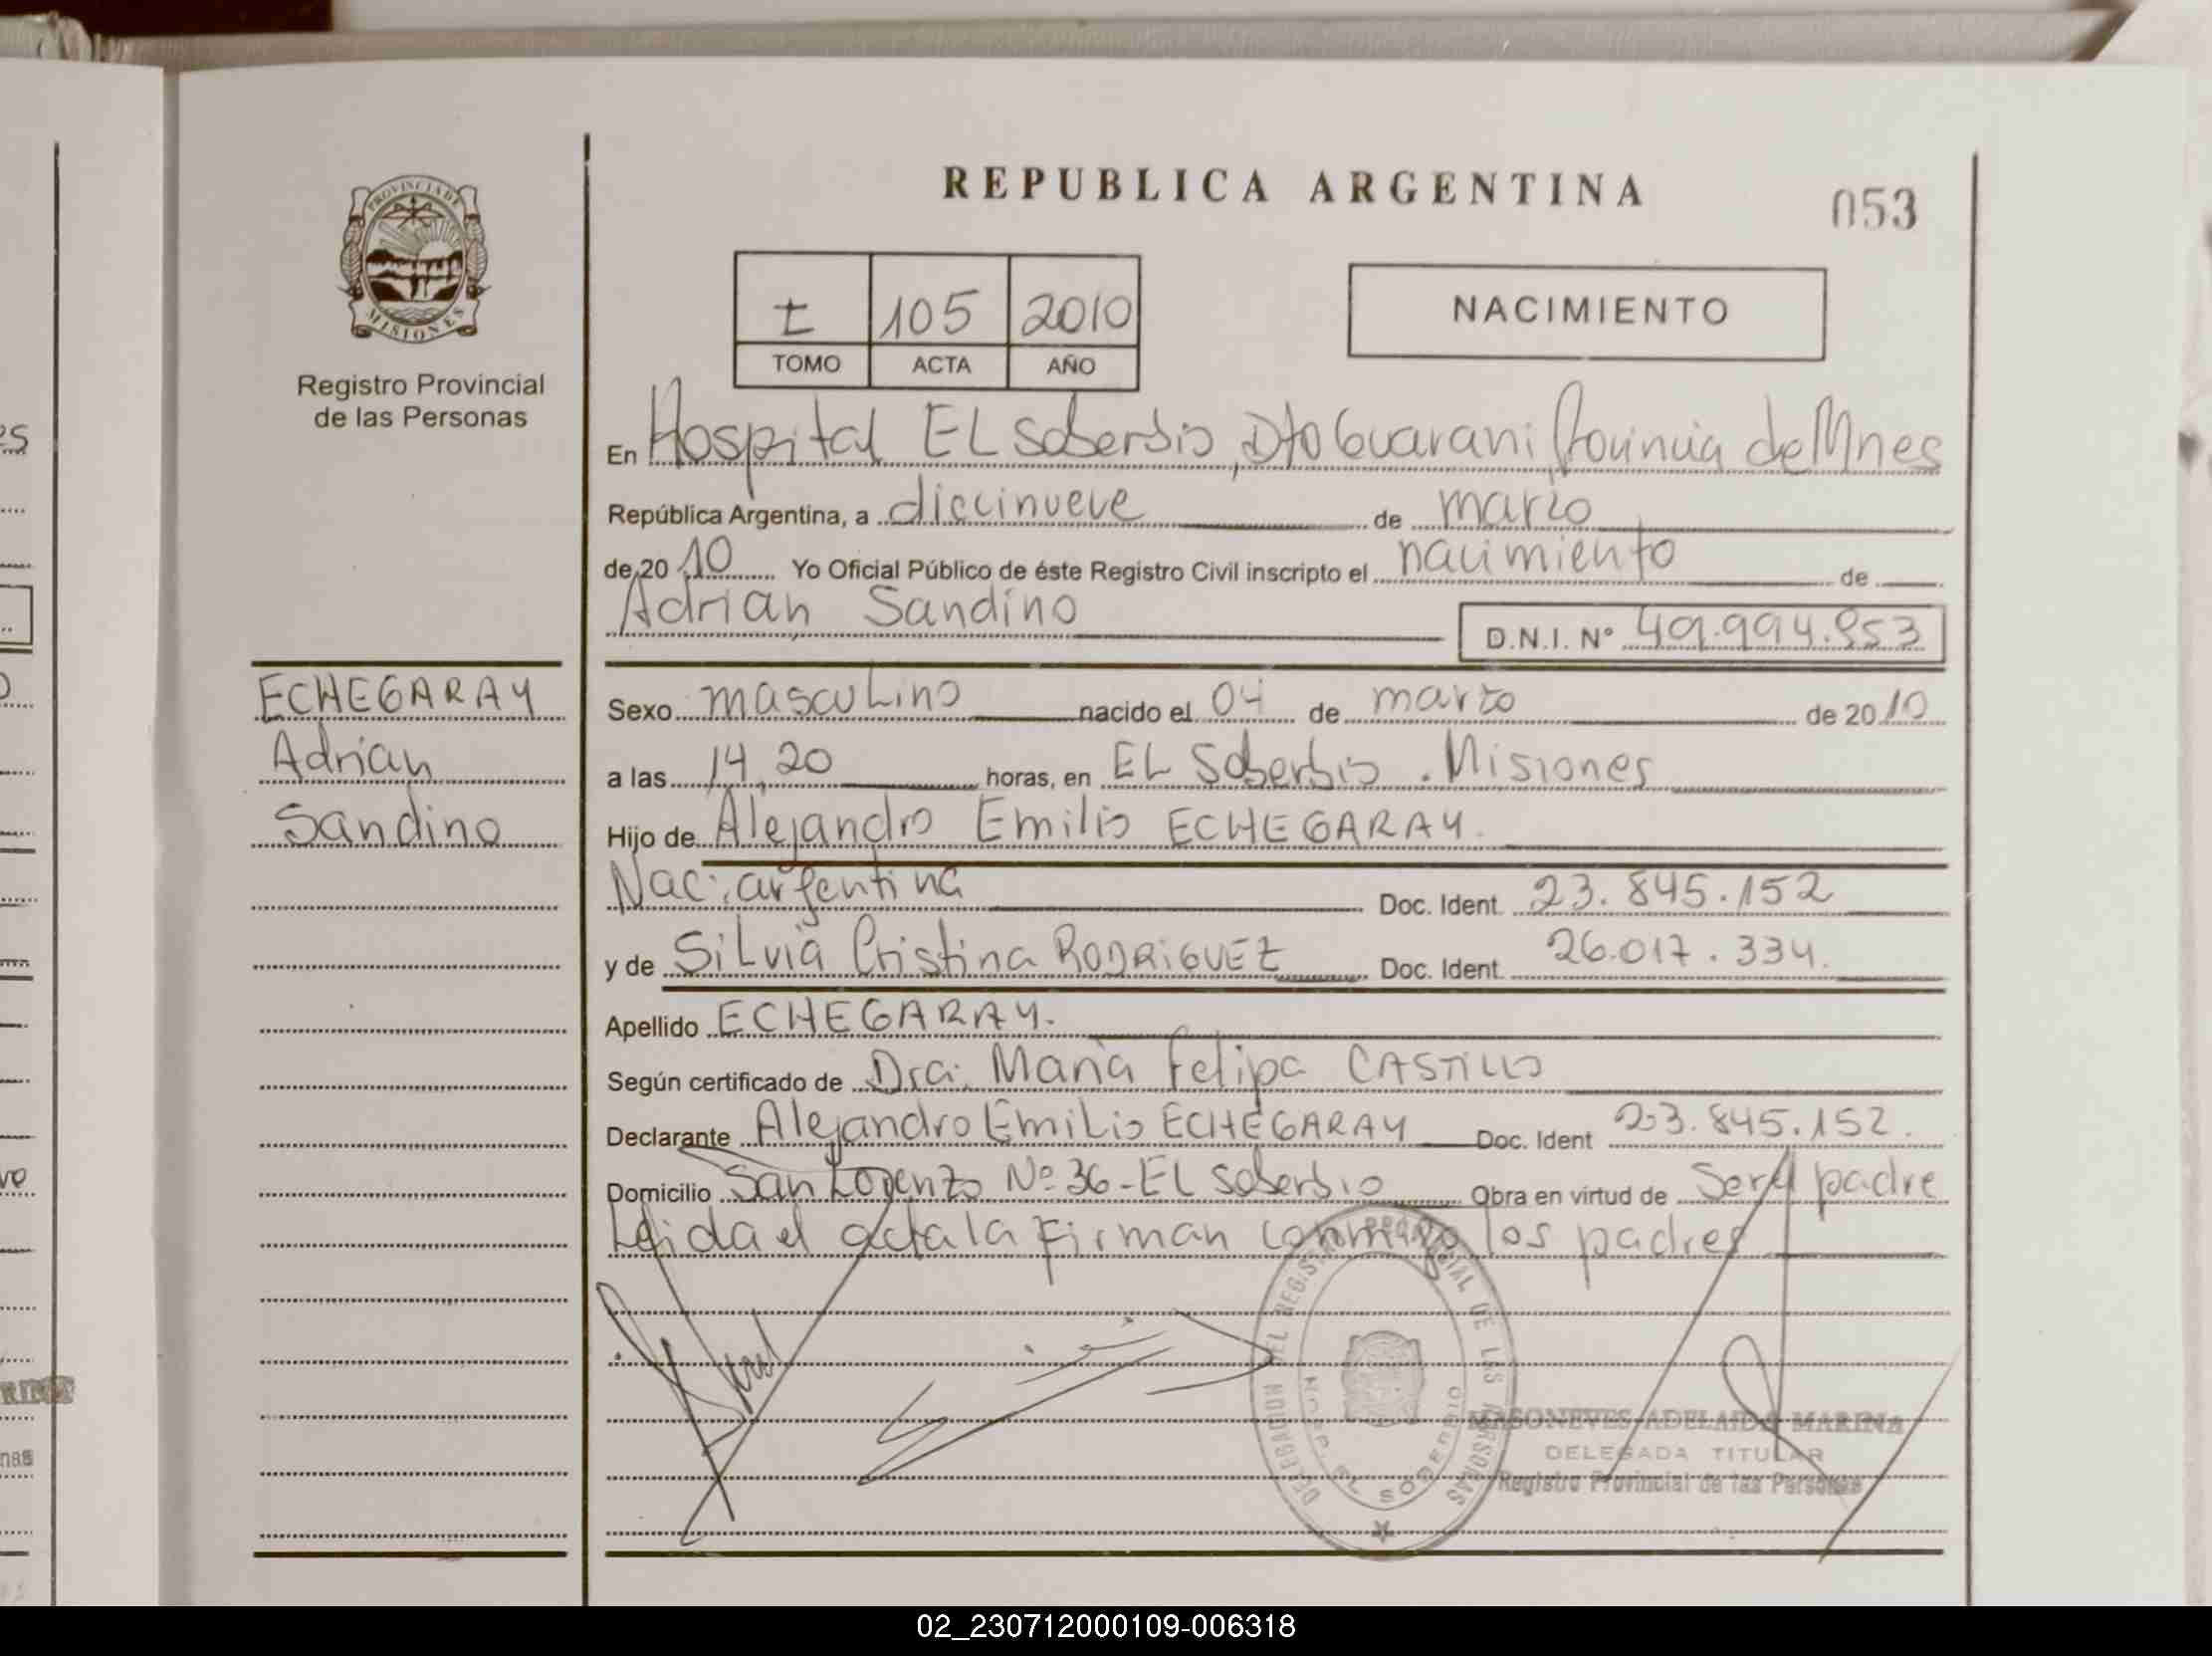 PROVINCIA DE
MISIONES
Registro Provincial
de las Personas
REPUBLICA ARGENTINA
053
I 105 2010
TOMO ACTA AÑO
NACIMIENTO
En Hospital EL Soberbio, Dto Guarani, Provincia de Mnes
República Argentina, a diecinueve de marzo
de 20 10 Yo Oficial Público de éste Registro Civil inscripto el nacimiento de
Adrian Sandino
D.N.I. Nº 49.994.953
ECHEGARAY
Adrian
Sandino
Sexo masculino nacido el 04 de marzo de 20 10
a las 14,20 horas, en EL Soberbio. Misiones
Hijo de Alejandro Emilio ECHEGARAY.
Nac: argentina Doc. Ident. 23.845.152
y de Silvia Cristina RODRIGUEZ Doc. Ident. 26.017.334.
Apellido ECHEGARAY.
Según certificado de Dra. Maria Felipa CASTILLO
Declarante Alejandro Emilio ECHEGARAY Doc. Ident 23.845.152.
Domicilio San Lorenzo Nº 36 - EL Soberbio Obra en virtud de Ser el padre
Leida el acta la Firman conmigo los padres
DELEGACION DEL REGISTRO PROVINCIAL DE LAS PERSONAS
HOSP. EL SOBERBIO
ADELAIDA MARINA
DELEGADA TITULAR
Registro Provincial de las Personas
02_230712000109-006318